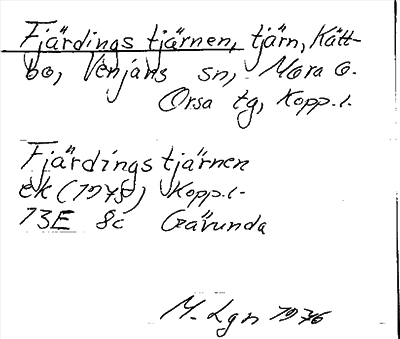 Fjärdings tjärnen, tjärn, Kätt-
bo, Venjans sn, Mora o.
Orsa tg, Kopp. l.
Fjärdings tjärnen
ek (1975) Kopp. l.
13E 8c Gävunda
M. Lgn 1976